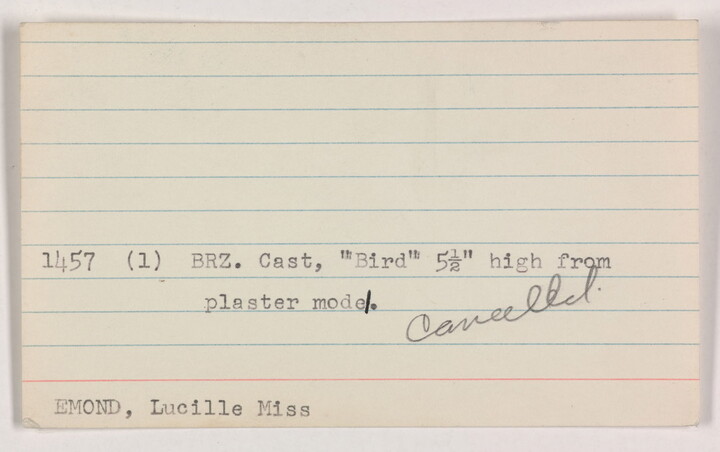 1457 (1) BRZ. Cast, "Bird" 5½" high from
plaster model.
Cancelled.
EMOND, Lucille Miss